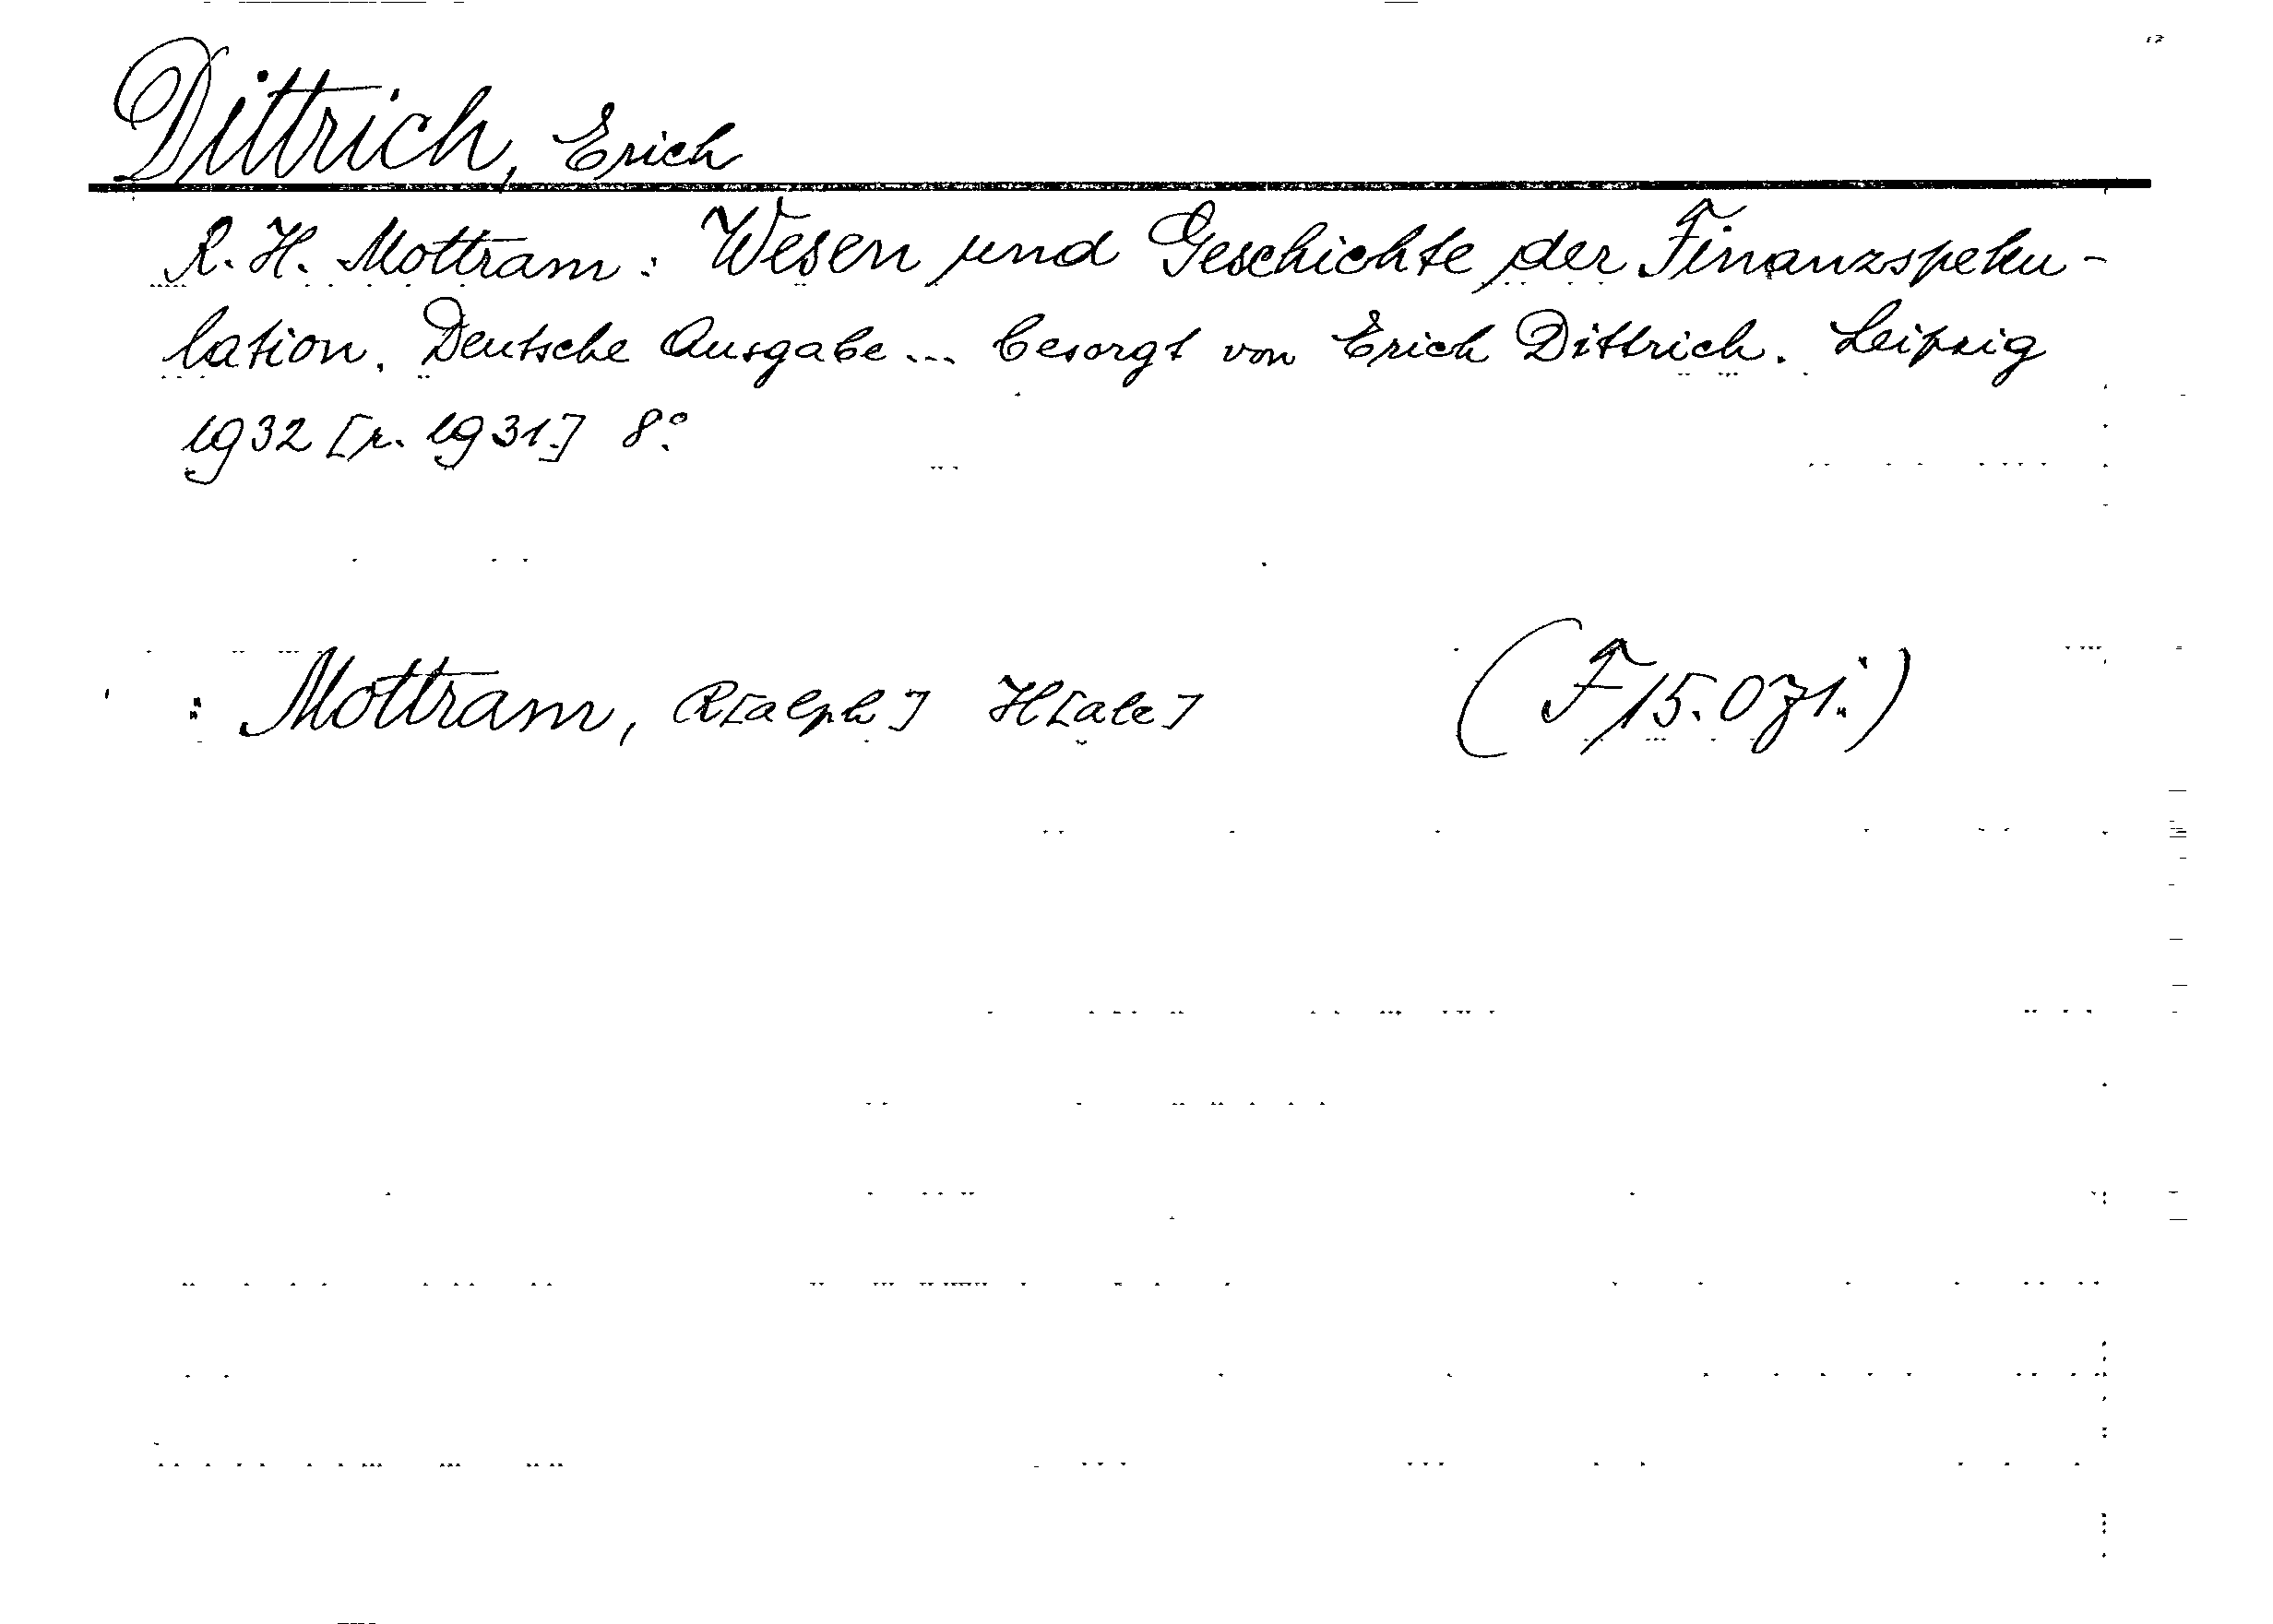 Dittrich, Erich
R. H. Mottram: Wesen und Geschichte der Finanzspeku-
lation. Deutsche Ausgabe... besorgt von Erich Dittrich. Leipzig
1932 [r. 1931.] 8°.
: Mottram, R[alph] H[ale] (F 15.071.)